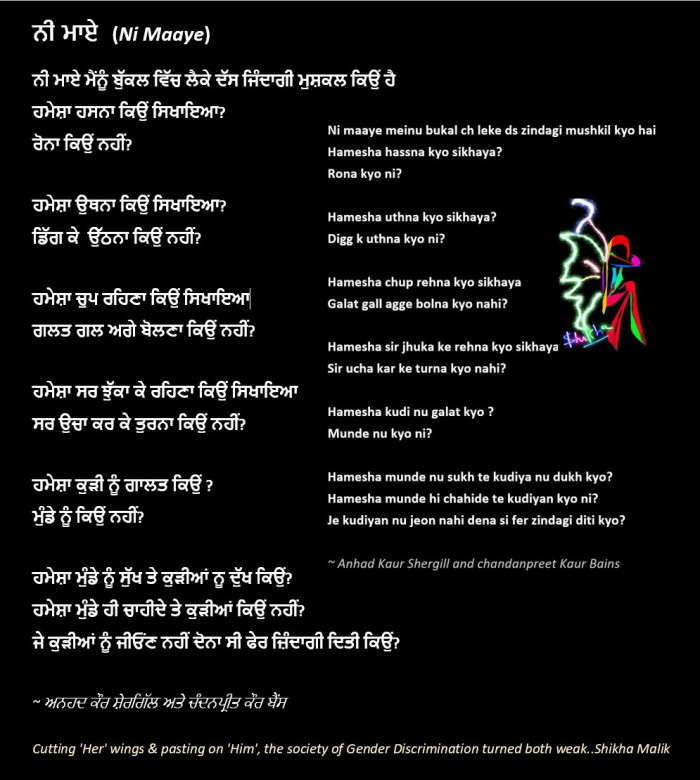 ਨੀ ਮਾਏ (Ni Maaye)
ਨੀ ਮਾਏ ਮੈਂਨੂੰ ਬੁੱਕਲ ਵਿੱਚ ਲੈਕੇ ਦੱਸ ਜਿੰਦਾਗੀ ਮੁਸ਼ਕਲ ਕਿਉਂ ਹੈ
ਹਮੇਸ਼ਾ ਹਸਨਾ ਕਿਉਂ ਸਿਖਾਇਆ?
ਰੋਨਾ ਕਿਉਂ ਨਹੀਂ?
ਹਮੇਸ਼ਾ ਉਥਨਾ ਕਿਉਂ ਸਿਖਾਇਆ?
ਡਿੱਗ ਕੇ ਉੱਠਨਾ ਕਿਉਂ ਨਹੀਂ?
ਹਮੇਸ਼ਾ ਚੁਪ ਰਹਿਣਾ ਕਿਉਂ ਸਿਖਾਇਆ
ਗਲਤ ਗਲ ਅਗੇ ਬੋਲਣਾ ਕਿਉਂ ਨਹੀਂ?
ਹਮੇਸ਼ਾ ਸਰ ਝੁੱਕਾ ਕੇ ਰਹਿਣਾ ਕਿਉਂ ਸਿਖਾਇਆ
ਸਰ ਉਚਾ ਕਰ ਕੇ ਤੁਰਨਾ ਕਿਉਂ ਨਹੀਂ?
ਹਮੇਸ਼ਾ ਕੁੜੀ ਨੂੰ ਗਾਲਤ ਕਿਉਂ ?
ਮੁੰਡੇ ਨੂੰ ਕਿਉਂ ਨਹੀਂ?
ਹਮੇਸ਼ਾ ਮੁੰਡੇ ਨੂੰ ਸੁੱਖ ਤੇ ਕੁੜੀਆਂ ਨੂ ਦੁੱਖ ਕਿਉਂ?
ਹਮੇਸ਼ਾ ਮੁੰਡੇ ਹੀ ਚਾਹੀਦੇ ਤੇ ਕੁੜੀਆਂ ਕਿਉਂ ਨਹੀਂ?
ਜੇ ਕੁੜੀਆਂ ਨੂੰ ਜੀਓਂਣ ਨਹੀਂ ਦੋਨਾ ਸੀ ਫੇਰ ਜ਼ਿੰਦਾਗੀ ਦਿਤੀ ਕਿਉਂ?
~ ਅਨਹਦ ਕੌਰ ਸ਼ੇਰਗਿੱਲ ਅਤੇ ਚੰਦਨਪ੍ਰੀਤ ਕੌਰ ਬੈਂਸ
Ni maaye meinu bukal ch leke ds zindagi mushkil kyo hai
Hamesha hassna kyo sikhaya?
Rona kyo ni?
Hamesha uthna kyo sikhaya?
Digg k uthna kyo ni?
Hamesha chup rehna kyo sikhaya
Galat gall agge bolna kyo nahi?
Hamesha sir jhuka ke rehna kyo sikhaya
Sir ucha kar ke turna kyo nahi?
Hamesha kudi nu galat kyo ?
Munde nu kyo ni?
Hamesha munde nu sukh te kudiya nu dukh kyo?
Hamesha munde hi chahide te kudiyan kyo ni?
Je kudiyan nu jeon nahi dena si fer zindagi diti kyo?
~ Anhad Kaur Shergill and chandanpreet Kaur Bains
Shikha
Cutting 'Her' wings & pasting on 'Him', the society of Gender Discrimination turned both weak..Shikha Malik